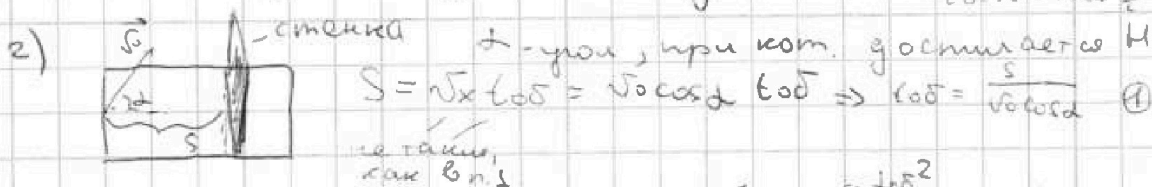 2) V₀ стенка α - угол, при кот. достигается H
α S = Vx tоб = V₀ cosα tоб ⇒ tоб = S / V₀cosα ①
S не такие,
как в п.1
tоб²